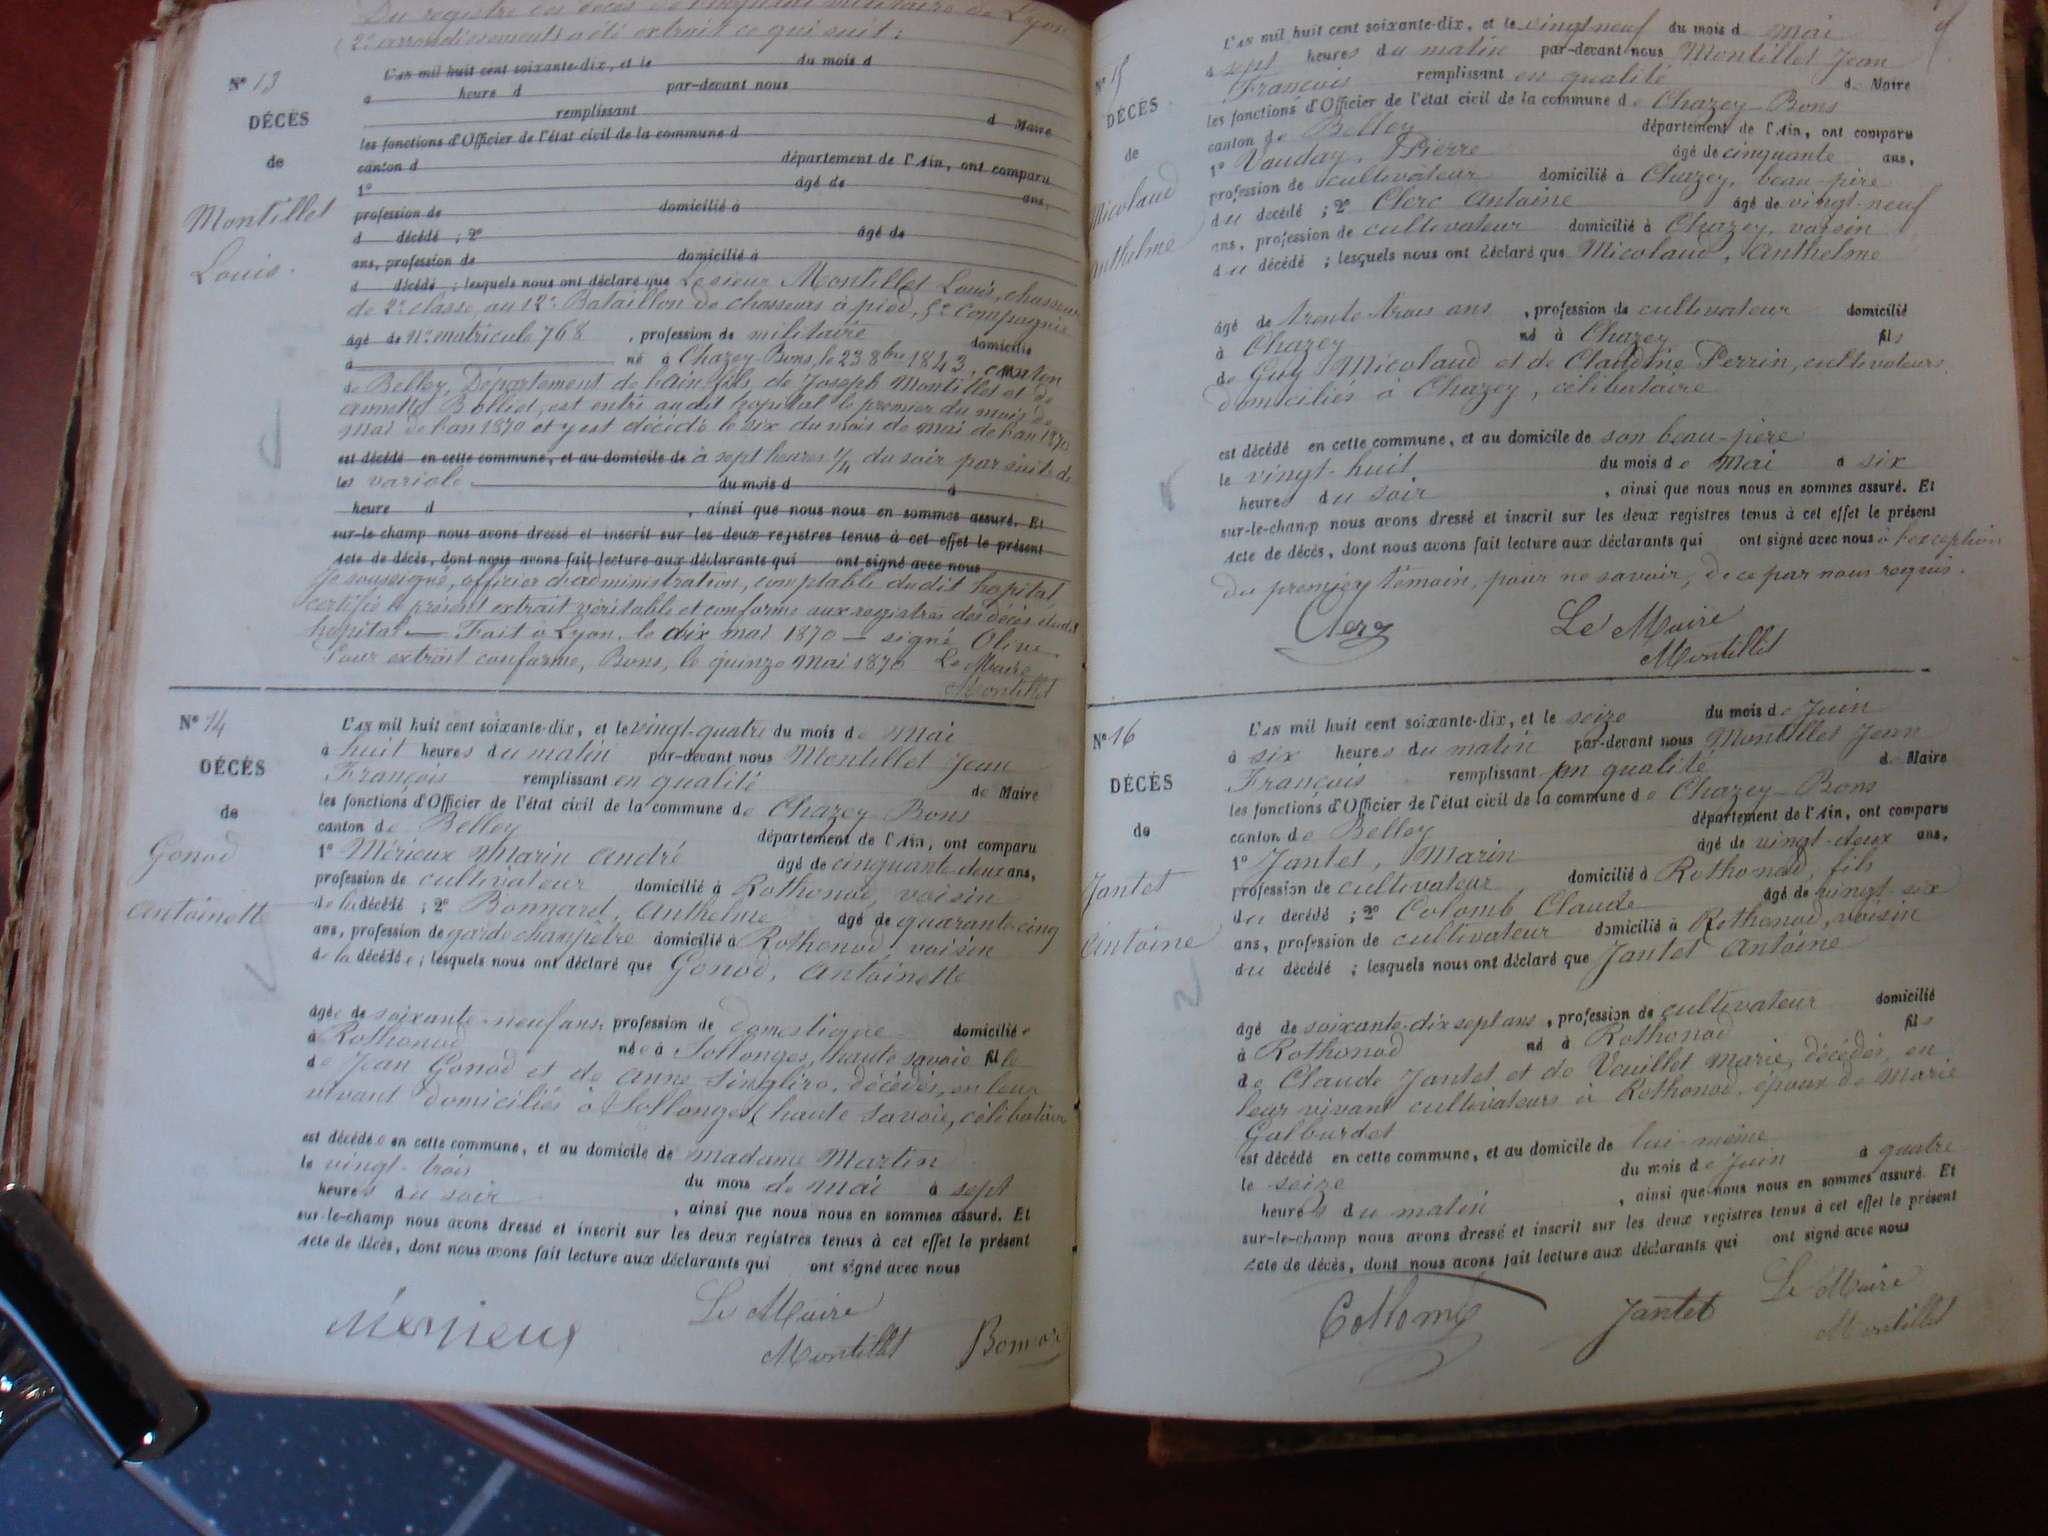 Du registre des décès de l'hôpital militaire de Lyon
(2e arrondissement) a été extrait ce qui suit :
No 13
DÉCÈS
de
Montillet
Louis.
L'AN mil huit cent soixante-dix, et le du mois d
a heure d par-devant nous
remplissant d Maire
les fonctions d'Officier de l'état civil de la commune d
canton d département de l'Ain, ont comparu
1o âgé de ans,
profession de domicilié à
d décédé ; 2o âgé de
ans, profession de domicilié à
d décédé ; lesquels nous ont déclaré que Le sieur Montillet Louis, chasseur
de 2e classe, au 12e Bataillon de chasseurs à pied, 5e Compagnie
âgé de No matricule 768 , profession de militaire domicilié
à né à Chazey-Bons, le 23 8bre 1843, canton
de Belley, Département de l'ain, fils de Joseph Montillet et de
annette Bolliet, est entré au dit hopital le premier du mois de
mai de l'an 1870 et y est décédé le six du mois de mai de l'an 1870
est décédé en cette commune, et au domicile de à sept heures 1/4 du soir par suite de
les variole du mois d à
heure d , ainsi que nous nous en sommes assuré. Et
sur-le-champ nous avons dressé et inscrit sur les deux registres tenus à cet effet le présent
Acte de décès, dont nous avons fait lecture aux déclarants qui ont signé avec nous
Je soussigné, officier d'administration, comptable du dit hopital,
certifie le présent extrait véritable et conforme aux registres des décès du dit
hopital — Fait à Lyon, le dix mai 1870 — signé Olive
Pour extrait conforme, Bons, le quinze Mai 1870 Le Maire
Montillet
No 14
DÉCÈS
de
Gonod
Antoinette
L'AN mil huit cent soixante-dix, et le vingt-quatre du mois de mai
à huit heures du matin par-devant nous Montillet Jean
François remplissant en qualité de Maire
les fonctions d'Officier de l'état civil de la commune de Chazey-Bons
canton de Belley département de l'Ain, ont comparu
1o Mérieux Marin André âgé de cinquante deux ans,
profession de cultivateur domicilié à Rothonod, voisin
de la décédé ; 2o Bonnard, Anthelme âgé de quarante-cinq
ans, profession de garde champetre domicilié à Rothonod voisin
de la décédée ; lesquels nous ont déclaré que Gonod, Antoinette
âgée de soixante-neuf ans, profession de domestique domiciliée
à Rothonod née à Sollonges, haute savoie fille
de Jean Gonod et de anne décédés, en leur
vivant domiciliés à Sollonges (haute savoie, célibataire
est décédée en cette commune, et au domicile de madame Martin
le vingt-trois du mois de mai à sept
heures du soir , ainsi que nous nous en sommes assuré. Et
sur-le-champ nous avons dressé et inscrit sur les deux registres tenus à cet effet le présent
Acte de décès, dont nous avons fait lecture aux déclarants qui ont signé avec nous
Mérieux Le Maire
Montillet Bonnard
No 15
DÉCÈS
de
Micolaud
Anthelme
L'AN mil huit cent soixante-dix, et le vingt neuf du mois d mai
à sept heures du matin par-devant nous Montillet Jean
François remplissant en qualité de Maire
les fonctions d'Officier de l'état civil de la commune de Chazey-Bons
canton de Belley département de l'Ain, ont comparu
1o Vauday, Pierre âgé de cinquante ans,
profession de cultivateur domicilié à Chazey, beau-père
du décédé ; 2o Clerc Antoine âgé de vingt-neuf
ans, profession de cultivateur domicilié à Chazey, voisin
du décédé ; lesquels nous ont déclaré que Micolaud, Anthelme
âgé de trente trois ans , profession de cultivateur domicilié
à Chazey né à Chazey fils
de Guy Micolaud et de Claudine Perrin, cultivateurs
domiciliés à Chazey, célibataire
est décédé en cette commune, et au domicile de son beau-père
le vingt-huit du mois de Mai à six
heures du soir , ainsi que nous nous en sommes assuré. Et
sur-le-champ nous avons dressé et inscrit sur les deux registres tenus à cet effet le présent
Acte de décès, dont nous avons fait lecture aux déclarants qui ont signé avec nous à l'exception
du premier témoin, pour ne savoir, de ce par nous requis.
Clerc Le Maire
Montillet
No 16
DÉCÈS
de
Jantet
Antoine
L'AN mil huit cent soixante-dix, et le seize du mois de Juin
à six heures du matin par-devant nous Montillet Jean
François remplissant en qualité d Maire
les fonctions d'Officier de l'état civil de la commune de Chazey-Bons
canton de Belley département de l'Ain, ont comparu
1o Jantet, Marin âgé de vingt-deux ans,
profession de cultivateur domicilié à Rothonod, fils
du décédé ; 2o Colomb Claude âgé de vingt-six
ans, profession de cultivateur domicilié à Rothonod, voisin
du décédé ; lesquels nous ont déclaré que Jantet Antoine
âgé de soixante-dix sept ans , profession de cultivateur domicilié
à Rothonod né à Rothonod fils
de Claude Jantet et de Vuillet Marie, décédés, en
leur vivant cultivateurs à Rothonod, époux de Marie
Galburdet
est décédé en cette commune, et au domicile de lui-même
le seize du mois de Juin à quatre
heures du matin , ainsi que nous nous en sommes assuré. Et
sur-le-champ nous avons dressé et inscrit sur les deux registres tenus à cet effet le présent
Acte de décès, dont nous avons fait lecture aux déclarants qui ont signé avec nous
Collomb Jantet Le Maire
Montillet